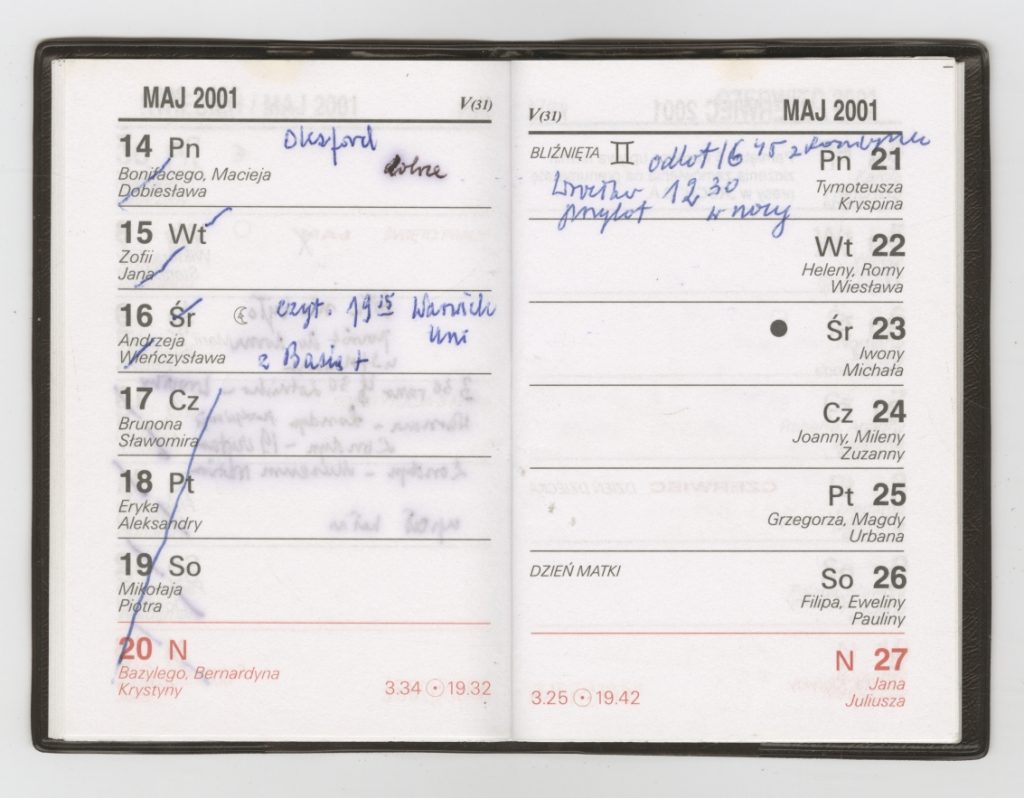 MAJ 2001
V(31)
14 Pn Oksford
Bonifacego, Macieja dobrze
Dobiesława
15 Wt
Zofii
Jana
16 Śr czyt. 19 15 Warwick
Andrzeja Uni
Wieńczysława z Basią +
17 Cz
Brunona
Sławomira
18 Pt
Eryka
Aleksandry
19 So
Mikołaja
Piotra
20 N
Bazylego, Bernardyna
Krystyny
3.34 19.32
V(31)
MAJ 2001
BLIŹNIĘTA odlot 16 45 z Londynu
Pn 21
12 30
Tymoteusza
przylot w nocy
Kryspina
Wt 22
Heleny, Romy
Wiesława
Śr 23
Iwony
Michała
Cz 24
Joanny, Mileny
Zuzanny
Pt 25
Grzegorza, Magdy
Urbana
DZIEŃ MATKI
So 26
Filipa, Eweliny
Pauliny
N 27
Jana
Juliusza
3.25 19.42